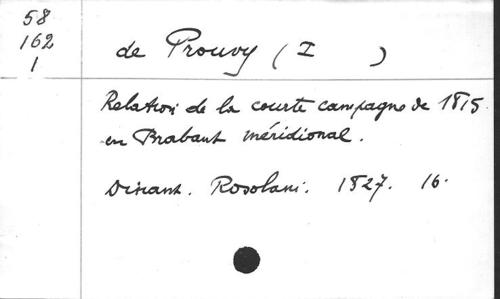 58
162
1
de Prouvy (I )
Relation de la courte campagne de 1815
en Brabant méridional.
Dinant. Rosolani. 1827. 16.